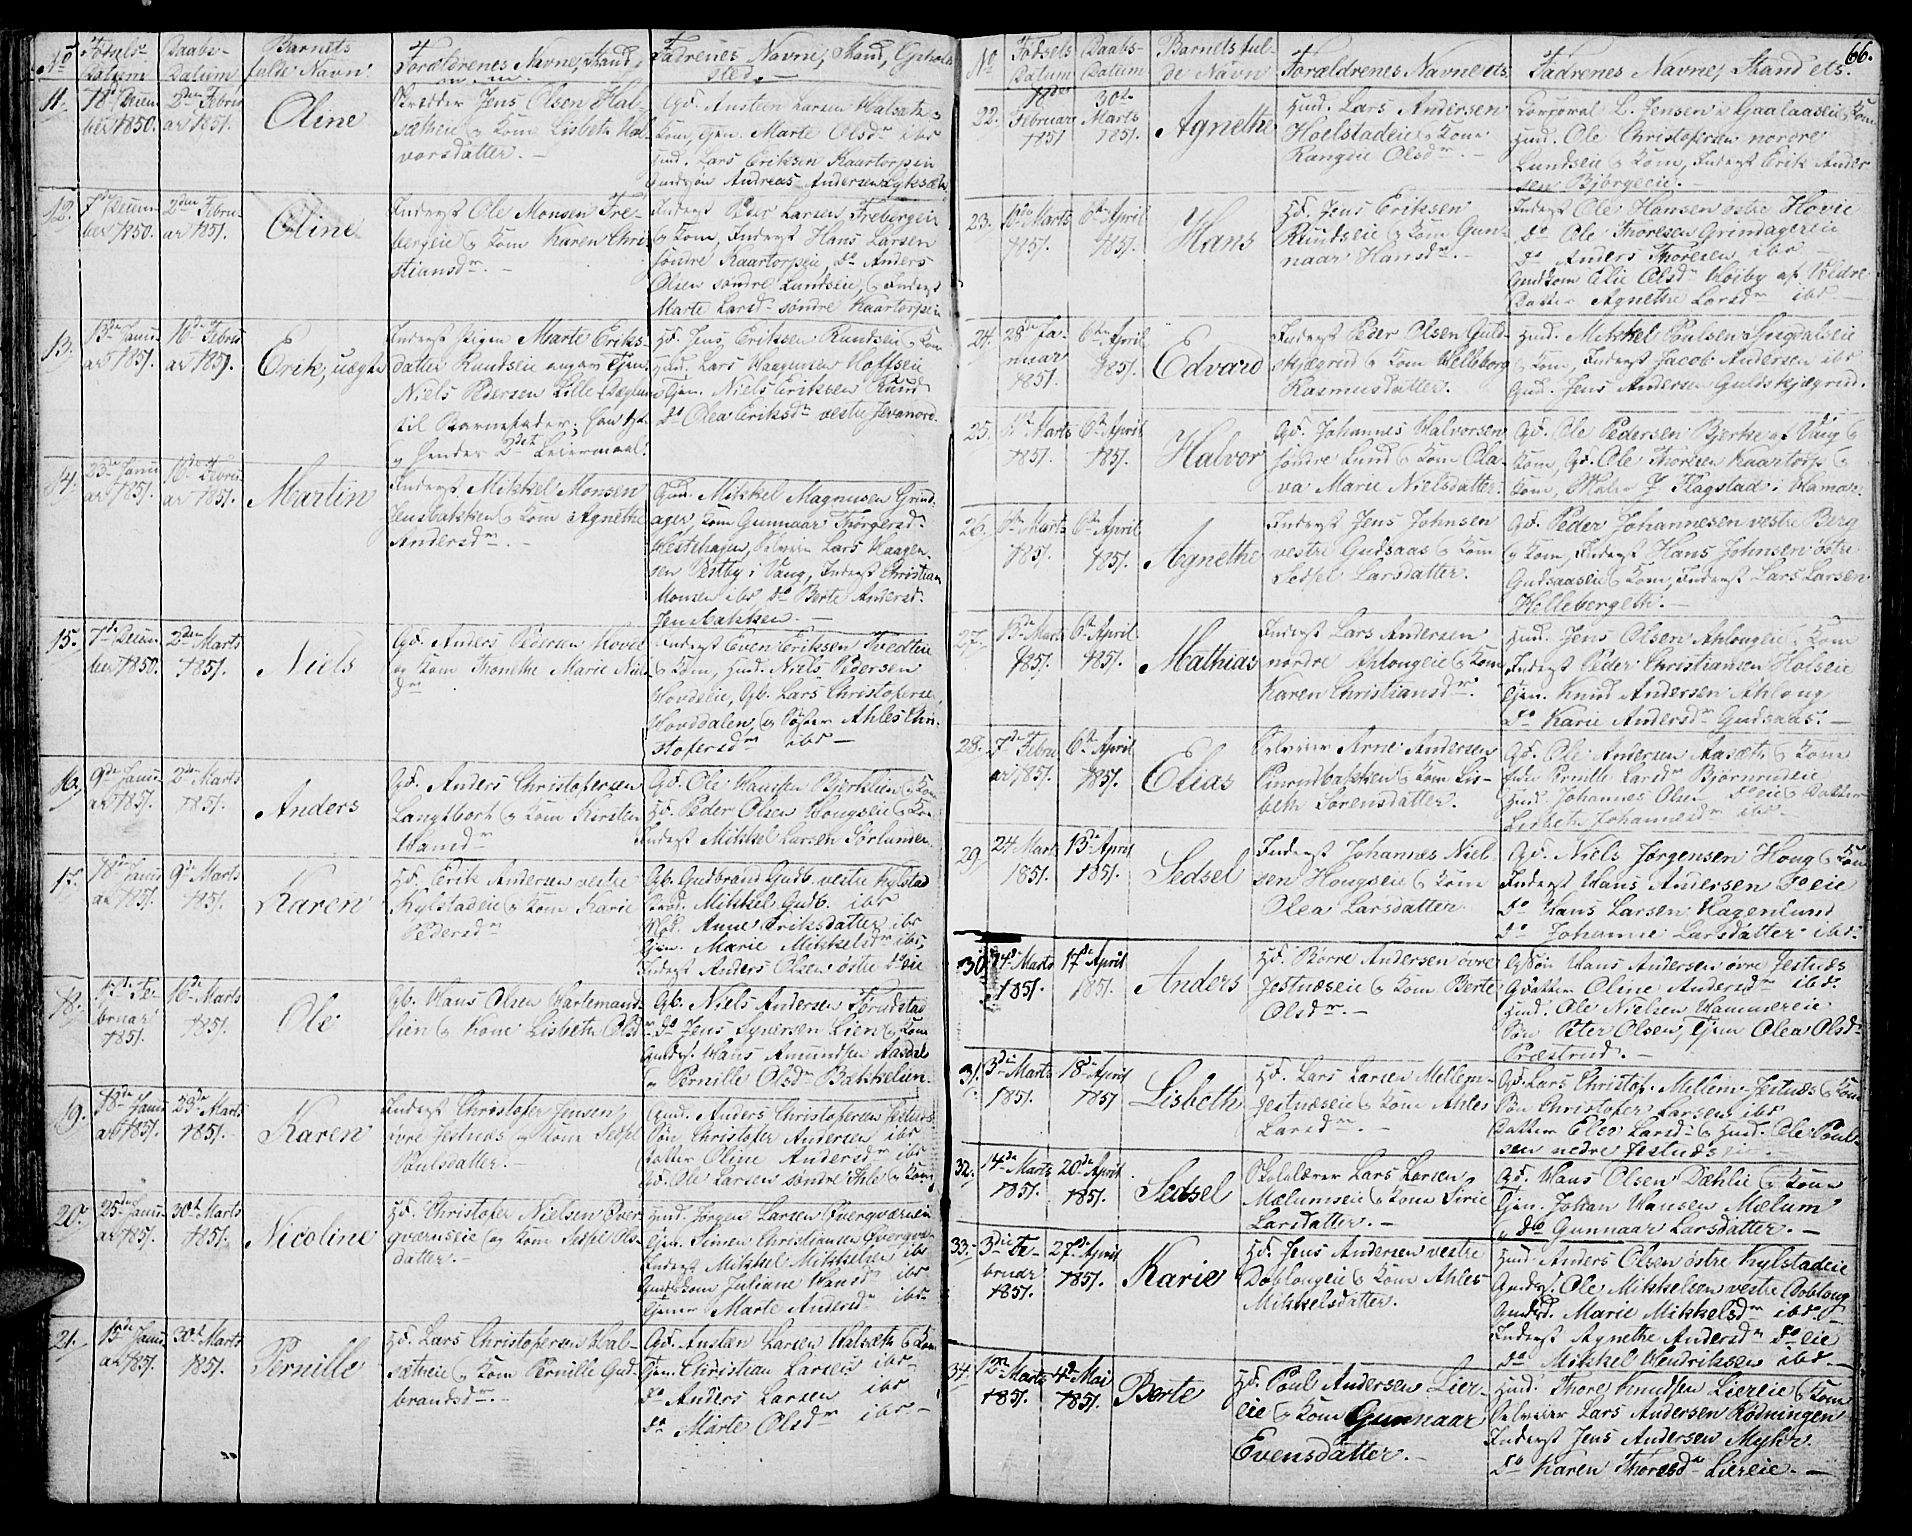 No
Fødsels
Datum
Daabs-
Datum
Barnets
fulde Navn.
Forældrenes Navne, Stand
Fadrenes Navne, Stand, Opholds
sted.
11.
18de Decem
ber 1850.
2den Febru
ar 1851.
Oline
Skredder Jens Olsen Hal-
sætheie og Kone Lisbeth Hal
vorsdatter.
Gd. Austeen Larsen Halsæth og
Kone, Tjen. Marte Olsdr ibd
Huusm. Lars Eriksen Kaartorpeie
Andreas Andersen
12.
7de Decem
ber 1850.
2den Febru-
ar 1851.
Oline
Inderst Ole Monsen Fre-
bergeie og Kone Karen Chri
stiansdr.
Inderst Peder Larsen Frebergeie
og Kone, Inderst Hans Larsen
søndre Kaartorpeie, do Anders
Olsen søndre Lundseie, og Inderst
Marte Larsd. søndre Kaartorpeie
13.
13de Janu
ar 1851.
16de Febru
ar 1851.
Erik, uægte
Inderst Pigen Marte Eriks-
datter Rundseie angav Tjen.
Niels Pedersen Lille
til Barnefader;
og hendes 2det Leiermaal.
Hd. Jens Eriksen Rundseie og Kone
Huusm. Lars
Tjen. Niels Eriksen Ruud
do Olea Eriksdr vestre Jevanord.
14.
23de Janu
ar 1851.
16de Febru
ar 1851.
Martin
Inderst Mikkel Monsen
Jensbakken og Kone Agnethe
Andersdr.
Huusm. Mikkel Magnusen Grind
ager, Kone Gunnaar Thorgersd.
Westehagen, Selveier Lars Haagen
sen Vestby i Vang, Inderst Christian
Monsen ibd do Berte Andersd.
Jensbakken.
15.
7de Decem
ber 1850.
2den Marts
1851.
Niels
Gd. Anders Pedersen Hovel
og Kone Thonethe Marie Niels
dr
Inderst Even Eriksen Tvedteie
og Kone, Huusm. Niels Pedersen
Hovdeleie, Gb. Lars Christofersen
Hovddalen og Søster Ahles Chri-
stofersdr ibd
16.
9de Janu
ar 1851.
2den Marts
1851.
Anders
Gd. Anders Christofersen
Langtbort og Kone Kirsten
Hansdr
Gd. Ole Hansen Bjerklien og Kone
Hd. Peder Olsen Hougseie og Kone
Inderst Mikkel Larsen Sørlunden
17.
18de Janu
ar 1851.
9de Marts
1851.
Karen
Hd. Erik Andersen vestre
Kylstadeie og Kone Karie
Pedersdr
Gb. Gudbrand Gudb. vestre Kylstad
Brod. Mikkel Gudb. ibd
Mod. Anne Eriksdatter ibd
Tjen. Marie Mikkelsdr ibd,
Inderst Anders Olsen østre do eie
18.
17de Fe-
bruar
1851.
16de Marts
1851.
Ole
Gb. Hans Olsen Hartemands
lien og Kone Lisbeth Olsdr
Gb. Niels Andersen Tørudstad
do Jens Syversen Lien og Kone
Hans Amundsen Aasdal
og Pernille Olsdr Bakkelien.
19.
18de Janu
ar 1851.
23de Marts
1851.
Karen
Inderst Christofer Jensen
øvre Jestnæs og Kone Sedsel
Poulsdatter.
Gmd. Anders Christofersen Jestnæs
Søn Christofer Andersen ibd
Datter Oline Andersdr ibd
Gd. Ole Larsen søndre Ihle og Kone
20.
25de Janu
ar 1851.
30te Marts
1851.
Nicoline
Hd. Christofer Nielsen Øver
qværnseie og Kone Sedsel Ols-
datter.
Huusm. Jørgen Larsen Øverqværneie
Tjen. Simen Christiansen Øverqværn
Inderst Mikkel Mikkelsen ibd
Juliane Hansd ibd
Marte Andersdr ibd
21.
15de Janu
ar 1851.
30te Marts
1851.
Pernille
Hd. Lars Christofersen Hal-
sætheie og Kone Pernille Gud-
brandsdr.
Gd. Austen Larsen Halsæth og Kone
Tjen. Christian Larsen ibd
do Anders Larsen ibd
do Marte Olsdr ibd
66.
No
Fødsels
Datum
Daabs-
Datum
Barnets ful-
de Navn
Forældrenes Navne etc.
Fadrenes Navne, Stand etc.
22.
Februar
1851
30te
Marts
1851.
Agnethe
Huusm. Lars Andersen
Hoelstadeie og Kone
Rangdie Olsdr.
Corporal L. Jensen i Gaalaaseie og Kone
Huusm. Ole Christofersen nordre
Lundseie og Kone, Inderst Erik Ander
sen Bjørgeeie.
23.
10de Marts
1851.
6te April
1851.
Hans
Hd. Jens Eriksen
Ruudseie og Kone Gun-
naar Hansdr.
Inderst Ole Hansen østre Hovie
do Ole Thoresen Grindagereie
do Anders Thoresen ibd
Elie Olsdr Høiby af Veldre
Datter Agnethe Larsdr ibd.
24.
28de Ja-
nuar
1851.
6te April
1851.
Edvard
Inderst Peder Olsen Guld-
skjægrud og Kone Velleborg
Rasmusdatter.
Huusm. Mikkel Poulsen
og Kone, Inderst Jacob Andersen ibd
Jens Andersen Guldskjægrud.
25.
1ste Marts
1851.
6te April
1851.
Halvor
Gd. Johannes Halvorsen
søndre Lund og Kone Ola-
va Marie Nielsdatter.
Gd. Ole Pedersen Bjerke af Vang og
Kone, Gd. Ole Thoresen Kaartorp og
Kone, J Flagstad i Hamar.
26.
6te Marts
1851.
6te April
1851.
Agnethe
Inderst Jens Johnsen
vestre Gudsaas og Kone
Sedsel Larsdatter.
Gd. Peder Johannesen vestre Berg
og Kone, Inderst Hans Johnsen østre
Gudsaaseie og Kone, Inderst Lars Larsen
Hollebergette.
27.
13de Marts
1851.
6te April
1851.
Mathias
Inderst Lars Andersen
nordre Ahlougeie og Kone
Karen Christiansdr.
Huusm. Jens Olsen Ahlougeie og Kone
Inderst Peder Christiansen Holseie
Tjen. Knud Andersen Ahloug
do Karie Andersdr Gudsaas.
28.
7de Febru
ar 1851.
6te April
1851.
Elias
Selveier Arne Andersen
og Kone Lis-
beth Sørensdatter.
Gd. Ole Andersen Aasæth og Kone
Pernille Larsdr Bjørnrudeie
Huusm. Johannes Olsen do eie og Datter
Lisbeth Johannesdr ibd.
29.
24 Marts
1851.
13de April
1851.
Sedsel
Inderst Johannes Niel-
sen Hougseie og Kone
Olea Larsdatter
Gd. Niels Jørgensen Houg og Kone
Inderst Hans Andersen do eie
do Hans Larsen Hagenlund
do Johanne Larsdatter ibd.
30.
14de Marts
1851.
17de April
1851.
Anders
Hd. Børre Andersen øvre
Jestnæseie og Kone Berte
Olsdr.
Gdsøn Hans Andersen øvre Jestnæs
Gdatter Oline Andersdr ibd.
Huusm. Ole Nielsen Hammereie
Søn Peter Olsen, Tjen Olea Olsdr
Præstrud.
31.
3die Marts
1851.
18de April
1851
Lisbeth
Hd. Lars Larsen Mellem-
Jestnæseie og Kone Ahles
Larsdr.
Gd. Lars Christof. Mellem-Jestnæs og Kone
Søn Christofer Larsen ibd
Datter Elee Larsd. og Huusm. Ole Poul-
sen nedre Jestnæseie.
32.
14de Marts
1851.
20de April
1851.
Sedsel
Skolelærer Lars Larsen
Mælumseie og Kone Sirie
Larsdatter.
Gd. Hans Olsen Dæhlie og Kone
Tjen. Johan Hansen Mælum
do Gunnaar Larsdatter.
33.
3die Fe-
bruar
1851.
27de April
1851.
Karie
Hd. Jens Andersen vestre
Doblougeie og Kone Ahles
Mikkelsdatter.
Huusm. Anders Olsen østre Kylstadeie
Ole Mikkelsen vestre Dobloug
Marie Mikkelsdr ibd
Inderst Agnethe Andersdr do eie
do Mikkel Hendriksen ibd.
34.
12te Marts
1851.
4de Mai
1851.
Berte
Hd. Poul Andersen Lier-
eie og Kone Gunnaar
Evensdatter.
Huusm. Thore Knudsen Liereie og Kone
Selveier Lars Andersen Rødningen
Inderst Jens Andersen Myhr.
do Karen Thoresdr Liereie.